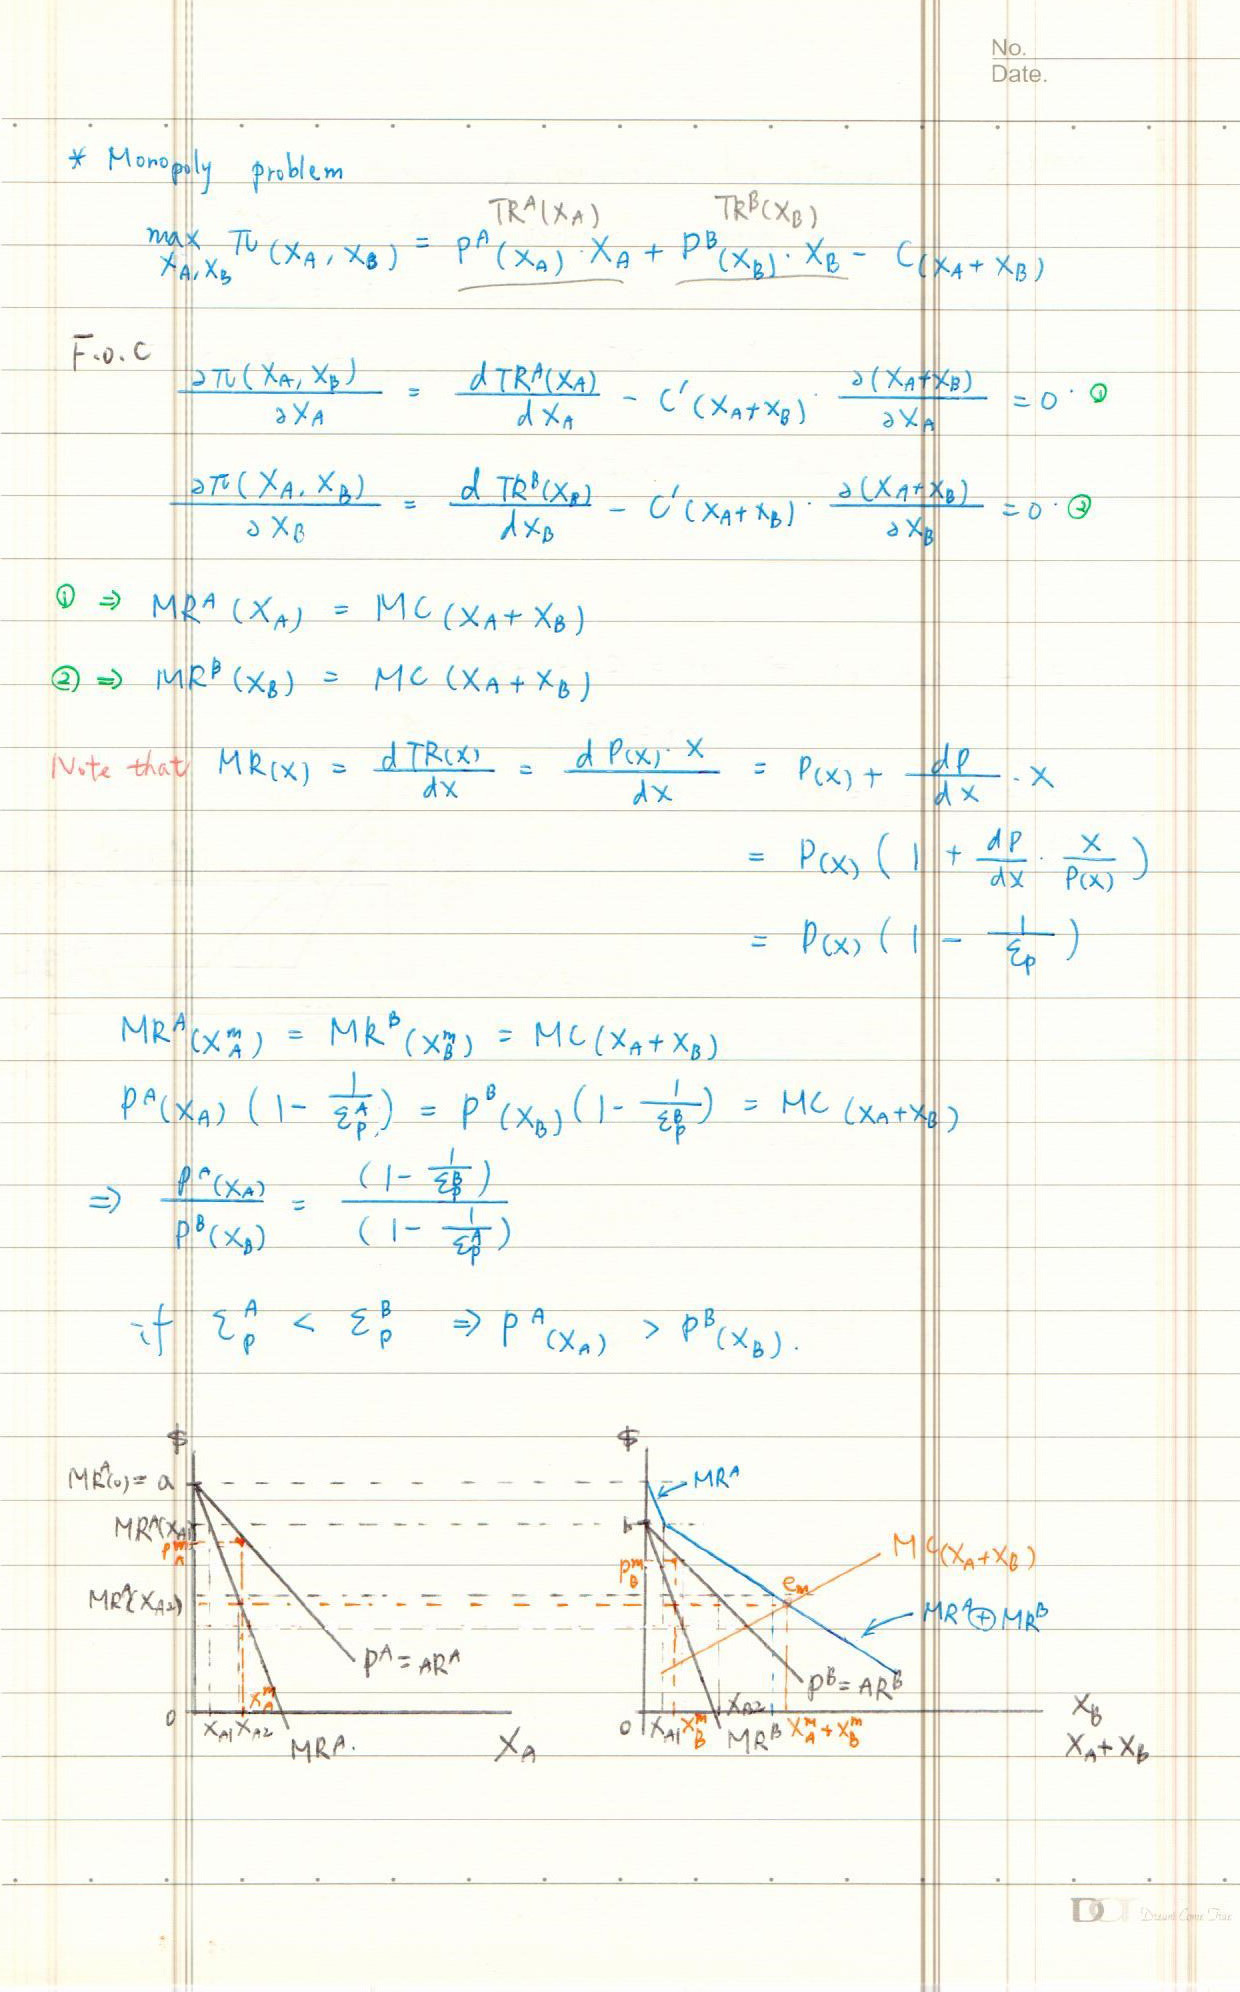 No.
Date.
* Monopoly problem
TR^A(X_A) TR^B(X_B)
max_{X_A, X_B} π(X_A, X_B) = P^A(X_A) · X_A + P^B(X_B) · X_B − C(X_A + X_B)
F.o.C
∂π(X_A, X_B)/∂X_A = dTR^A(X_A)/dX_A − C'(X_A+X_B) · ∂(X_A+X_B)/∂X_A = 0 · ①
∂π(X_A, X_B)/∂X_B = d TR^B(X_B)/dX_B − C'(X_A+X_B) · ∂(X_A+X_B)/∂X_B = 0 · ②
① ⇒ MR^A(X_A) = MC(X_A + X_B)
② ⇒ MR^B(X_B) = MC(X_A + X_B)
Note that MR(X) = dTR(X)/dX = d P(X) · X/dX = P(X) + dP/dX · X
= P(X) ( 1 + dP/dX · X/P(X) )
= P(X) ( 1 − 1/ε_P )
MR^A(X_A^m) = MR^B(X_B^m) = MC(X_A + X_B)
P^A(X_A) (1 − 1/ε_P^A) = P^B(X_B) (1 − 1/ε_P^B) = MC(X_A+X_B)
⇒ P^A(X_A)/P^B(X_B) = (1 − 1/ε_P^B)/(1 − 1/ε_P^A)
if ε_P^A < ε_P^B ⇒ P^A(X_A) > P^B(X_B).
$
MR^A(0) = a
MR^A(X_A1)
P_A^m
MR^A(X_A2)
P^A = AR^A
X_A^m
0
X_A1 X_A2
MR^A.
X_A
$
MR^A
b
MC(X_A+X_B)
P_B^m
e_m
MR^A ⊕ MR^B
P^B = AR^B
X_B2
0
X_A1 X_B^m
MR^B
X_A^m + X_B^m
X_B
X_A + X_B
DCT Dream Come True